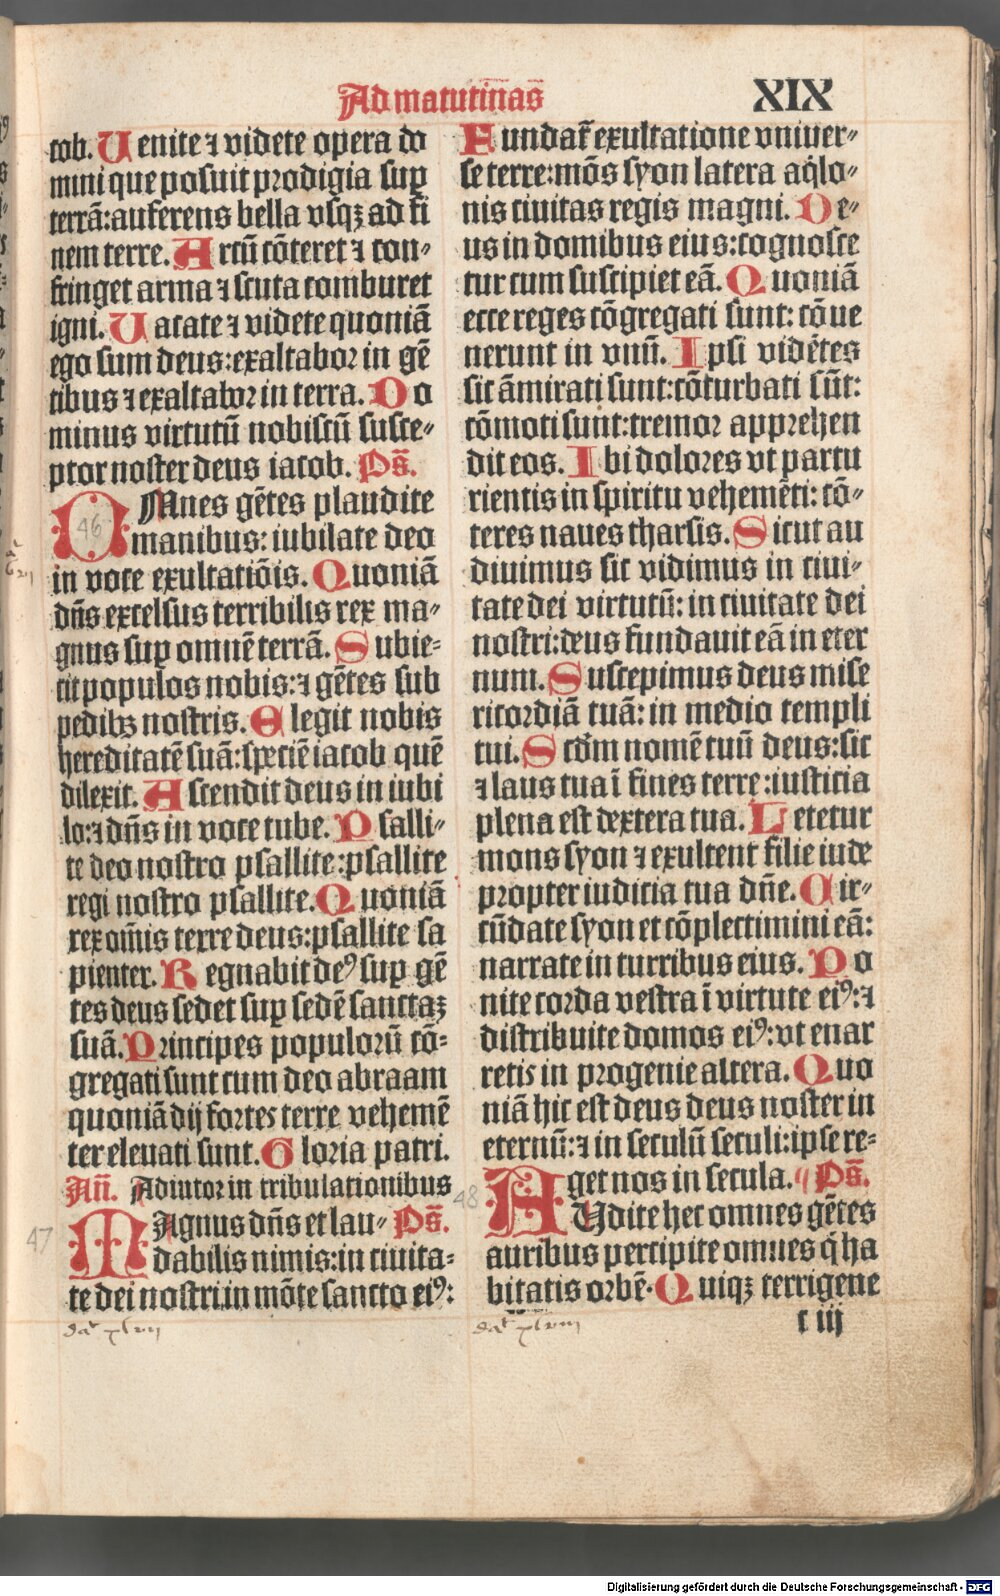 Ad matutin̄as̄
XIX
cob. Uenite ⁊ videte opera do
mini que posuit prodigia suꝑ
terrā: auferens bella vsqꝫ ad fi
nem terre. Arcū cōteret ⁊ con-
fringet arma ⁊ scuta comburet
igni. Uacate ⁊ videte quoniā
ego sum deus: exaltabor in gē
tibus ⁊ exaltabor in terra. Do
minus virtutū nobiscū susce-
ptor noster deus iacob. Ps̄.
OMnes gētes plaudite
manibus: iubilate deo
in voce exultatiōis. Quoniā
dn̄s excelsus terribilis rex ma-
gnus suꝑ omnē terrā. Subie-
cit populos nobis: ⁊ gētes sub
pedibꝫ nostris. Elegit nobis
hereditatē suā: speciē iacob quē
dilexit. Ascendit deus in iubi
lo: ⁊ dn̄s in voce tube. Psalli-
te deo nostro psallite: psallite
regi nostro psallite. Quoniā
rex om̄is terre deus: psallite sa
pienter. Regnabit deꝰ suꝑ gē
tes deus sedet suꝑ sedē sanctaꝫ
suā. Principes populorū cō-
gregati sunt cum deo abraam
quoniā dij fortes terre vehemē
ter eleuati sunt. Gloria patri.
An̄. Adiutor in tribulationibus
MAgnus dn̄s et lau- Ps̄.
dabilis nimis: in ciuita-
te dei nostri in mōte sancto eiꝰ:
Fundat̄ exultatione vniuer-
se terre: mōs syon latera aq̇lo-
nis ciuitas regis magni. De-
us in domibus eius: cognosce
tur cum suscipiet eā. Quoniā
ecce reges cōgregati sunt: cōue
nerunt in vnū. Ipsi vidētes
sic āmirati sunt: cōturbati sūt:
cōmoti sunt: tremor apprehen
dit eos. Ibi dolores vt partu
rientis in spiritu vehemēti: cō-
teres naues tharsis. Sicut au
diuimus sic vidimus in ciui-
tate dei virtutū: in ciuitate dei
nostri: deus fundauit eā in eter
num. Suscepimus deus mise
ricordiā tuā: in medio templi
tui. Scd̄m nomē tuū deus: sic
⁊ laus tua ī fines terre: iusticia
plena est dextera tua. Letetur
mons syon ⁊ exultent filie iude
propter iudicia tua dn̄e. Cir-
cūdate syon et cōplectimini eā:
narrate in turribus eius. Po
nite corda vestra ī virtute eiꝰ: ⁊
distribuite domos eiꝰ: vt enar
retis in progenie altera. Quo
niā hic est deus deus noster in
eternū: ⁊ in seculū seculi: ipse re-
get nos in secula. Ps̄.
AUdite hec omnes gētes
auribus percipite omnes q̇ ha
bitatis orbē. Quiqꝫ terrigene
c iij
46
47
48
Digitalisierung gefördert durch die Deutsche Forschungsgemeinschaft - DFG